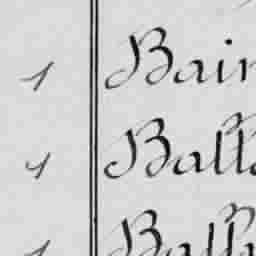 1 Bair
1 Balla
1 Balla